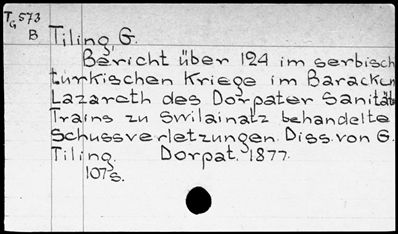 TG 573
B
Tiling G.
Bericht über 124 im serbisch
turkischen Kriege im Baracken
Lazareth des Dorpater Sanitäts
Trains zu Swilainatz behandelte
Schussverletzungen. Diss. von G.
Tiling. Dorpat. 1877.
107 s.